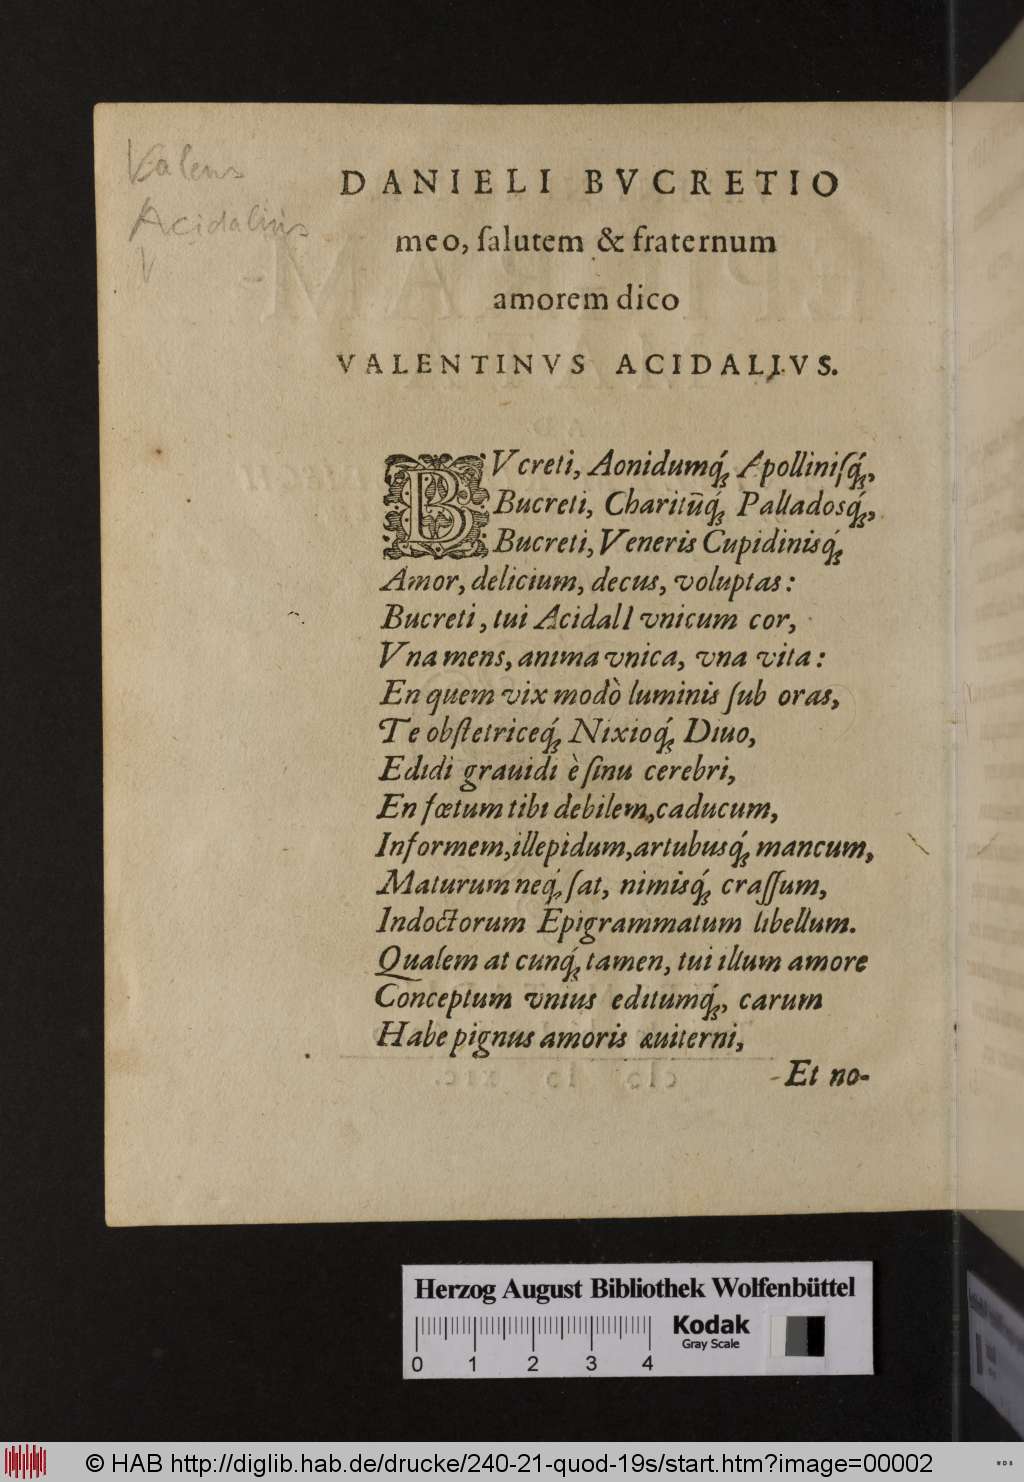 Valens
Acidalius
V
DANIELI BVCRETIO
meo, ſalutem & fraternum
amorem dico
VALENTINVS ACIDALIVS.
BVcreti, Aonidumq́ꝫ Apolliniſq́ꝫ,
Bucreti, Charitūq́ꝫ Palladosq́ꝫ,
Bucreti, Veneris Cupidinisq́ꝫ
Amor, delicium, decus, voluptas:
Bucreti, tui AcidalI vnicum cor,
Vna mens, anima vnica, vna vita:
En quem vix modò luminis ſub oras,
Te obſtetriceq́ꝫ Nixioq́ꝫ Diuo,
Edidi grauidi è ſinu cerebri,
En fœtum tibi debilem, caducum,
Informem, illepidum, artubusq́ꝫ mancum,
Maturum neq́ꝫ ſat, nimisq́ꝫ craſſum,
Indoctorum Epigrammatum libellum.
Qualem at cunq́ꝫ tamen, tui illum amore
Conceptum vnius editumq́ꝫ, carum
Habe pignus amoris æuiterni,
Et no-
Herzog August Bibliothek Wolfenbüttel
0 1 2 3 4
Kodak
Gray Scale
© HAB http://diglib.hab.de/drucke/240-21-quod-19s/start.htm?image=00002